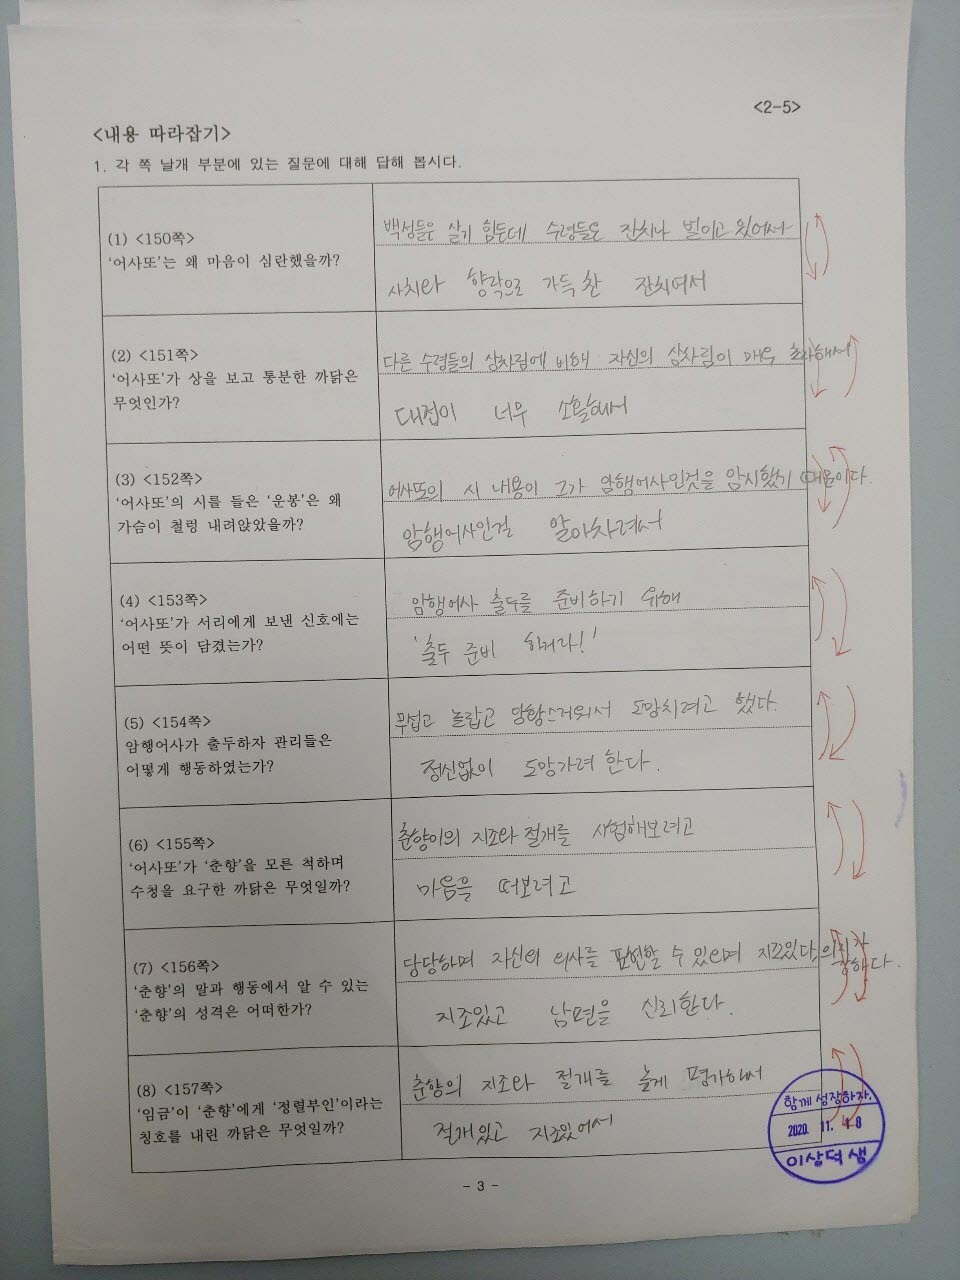 <2-5>
<내용 따라잡기>
1. 각 쪽 날개 부분에 있는 질문에 대해 답해 봅시다.
(1) <150쪽>
'어사또'는 왜 마음이 심란했을까?
백성들은 살기 힘든데 수령들은 잔치나 벌이고 있어서
사치와 향락으로 가득 찬 잔치여서
(2) <151쪽>
'어사또'가 상을 보고 통분한 까닭은
무엇인가?
다른 수령들의 상차림에 비해 자신의 상차림이 매우 초라해서
대접이 너무 소홀해서
(3) <152쪽>
'어사또'의 시를 들은 '운봉'은 왜
가슴이 철렁 내려앉았을까?
어사또의 시 내용이 그가 암행어사인것을 암시했기 때문이다.
암행어사인걸 알아차려서
(4) <153쪽>
'어사또'가 서리에게 보낸 신호에는
어떤 뜻이 담겼는가?
암행어사 출두를 준비하기 위해
'출두 준비 하여라!'
(5) <154쪽>
암행어사가 출두하자 관리들은
어떻게 행동하였는가?
무섭고 놀랍고 당황스러워서 도망치려고 했다.
정신없이 도망가려 한다.
(6) <155쪽>
'어사또'가 '춘향'을 모른 척하며
수청을 요구한 까닭은 무엇일까?
춘향이의 지조와 절개를 시험해보려고
마음을 떠보려고
(7) <156쪽>
'춘향'의 말과 행동에서 알 수 있는
'춘향'의 성격은 어떠한가?
당당하며 자신의 의사를 표현할 수 있으며 지조있다. 의지가
강하다.
지조있고 남편을 신뢰한다.
(8) <157쪽>
'임금'이 '춘향'에게 '정렬부인'이라는
칭호를 내린 까닭은 무엇일까?
춘향의 지조와 절개를 높게 평가해서
절개있고 지조있어서
함께 성장하자.
2020. 11. 18
이상덕 샘
- 3 -